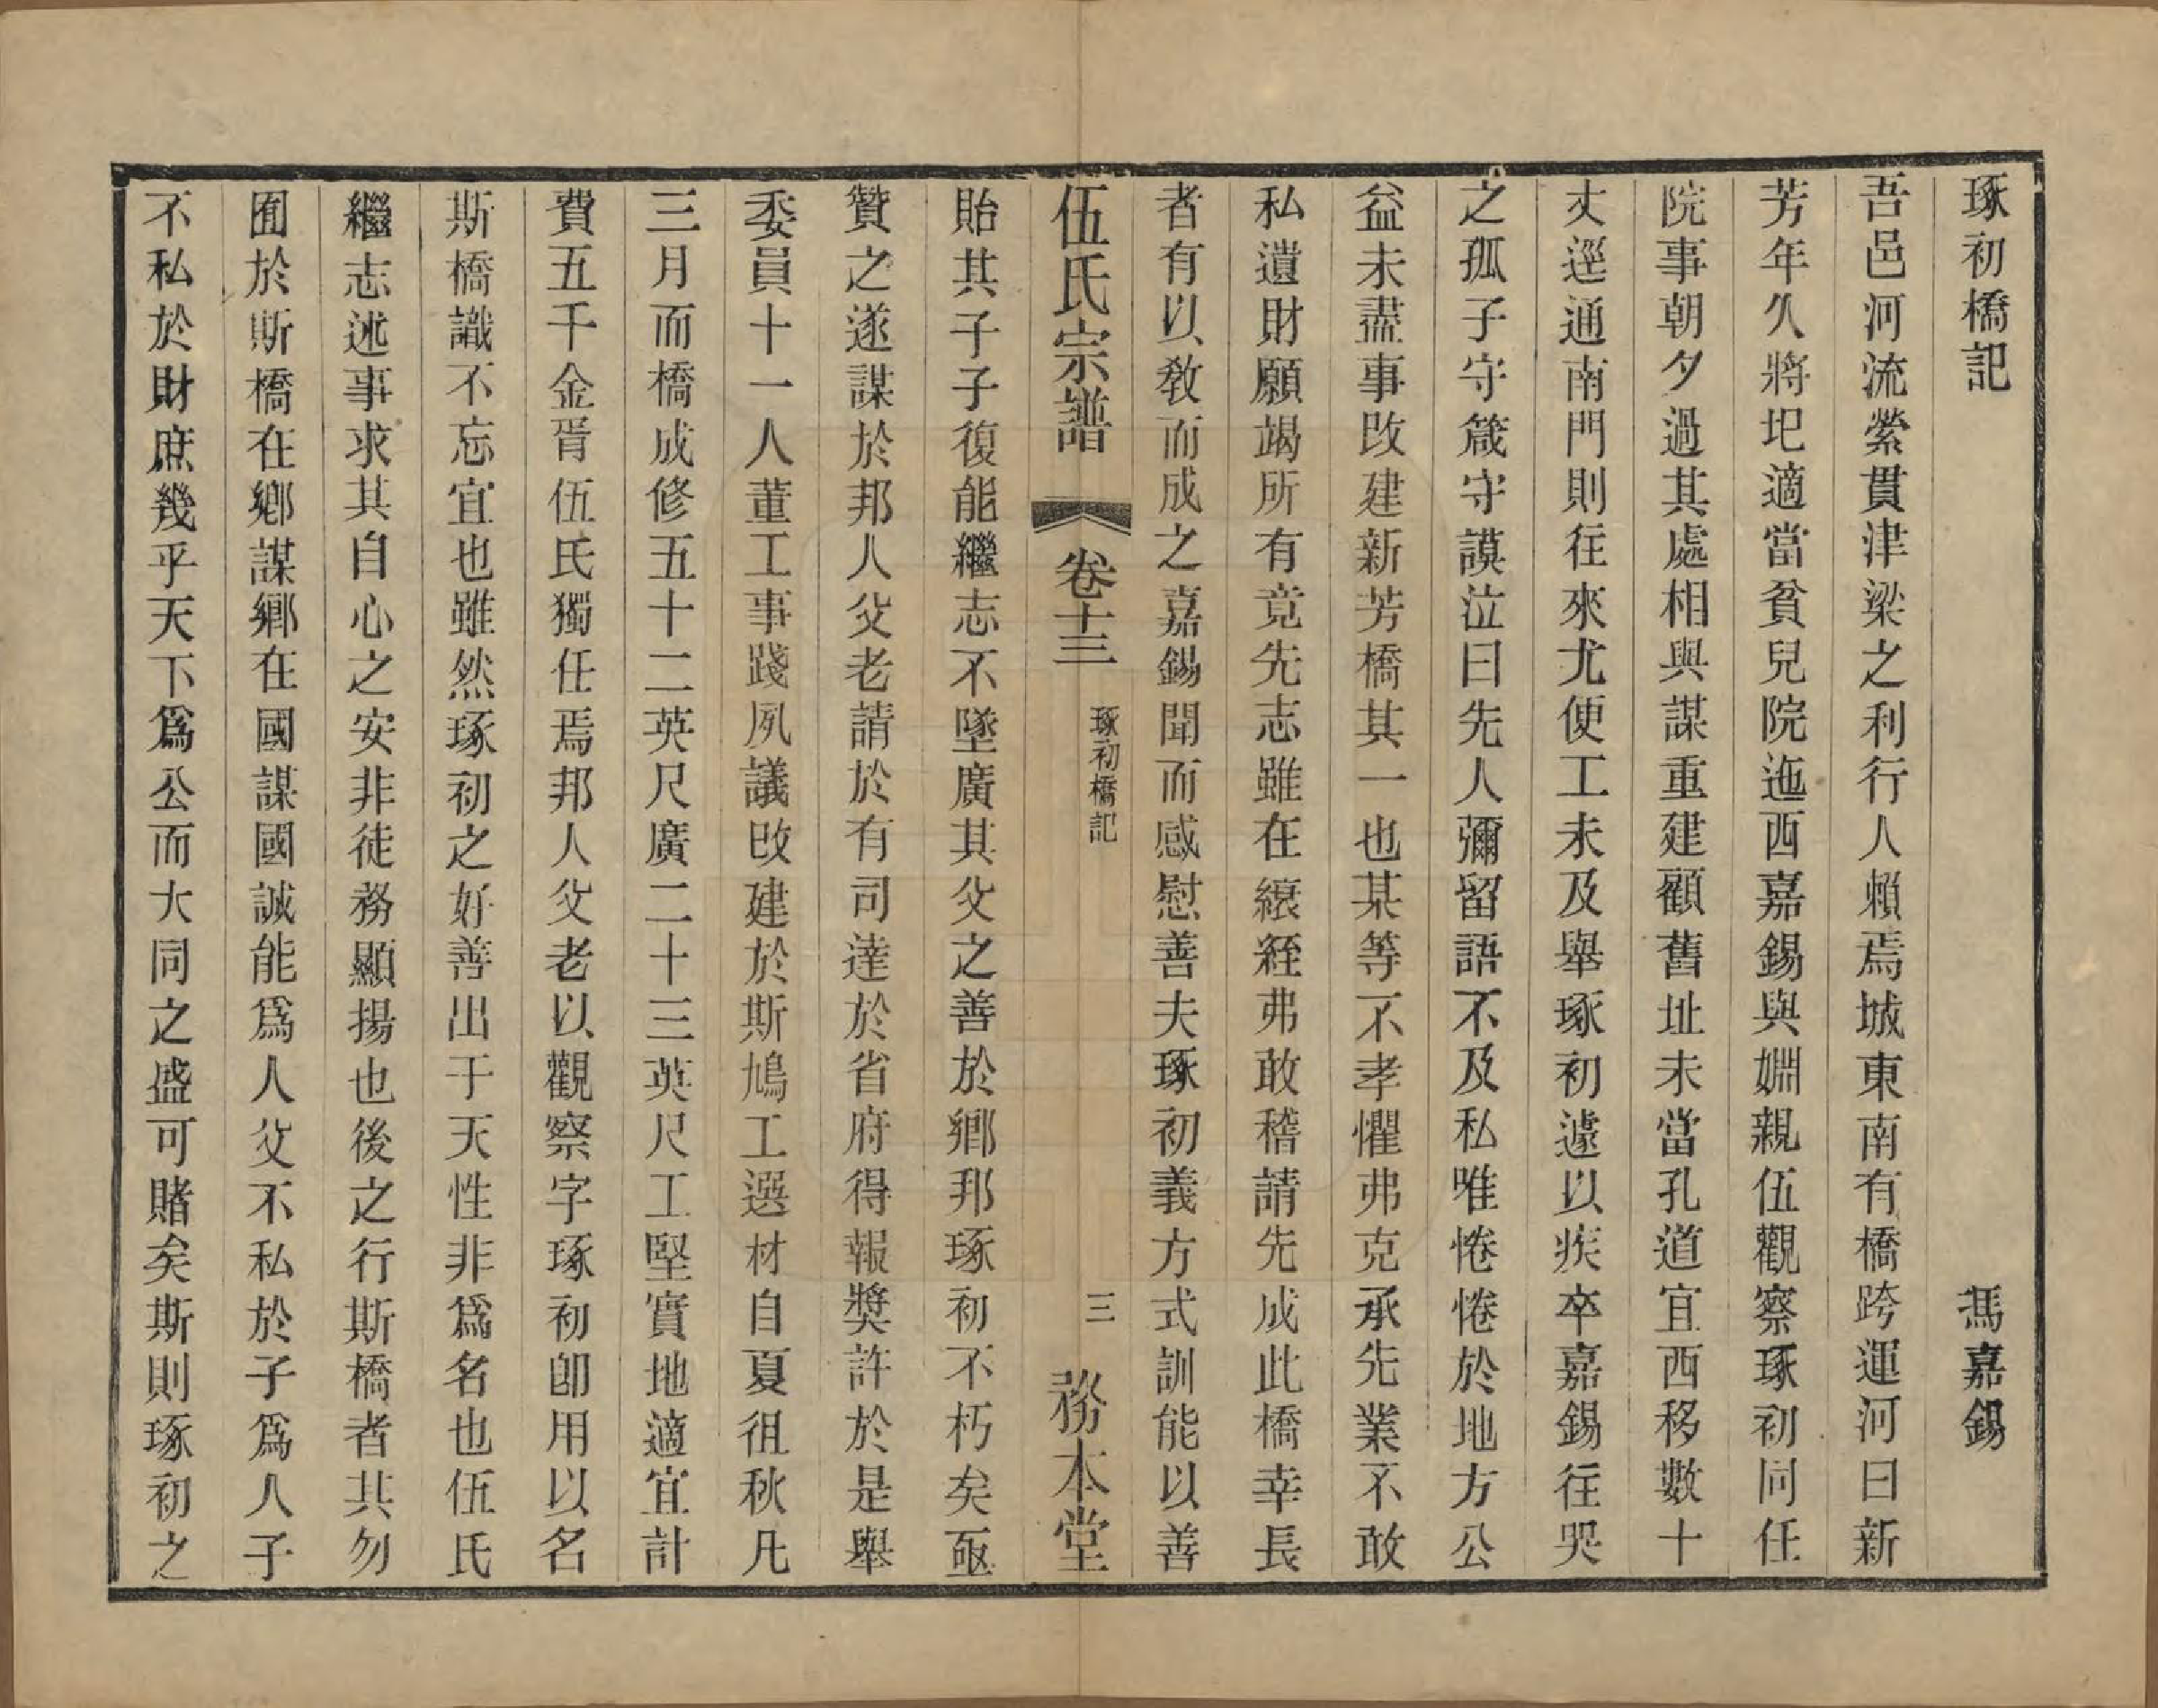 琢初橋記　馮嘉錫
吾邑河流縈貫津梁之利行人賴焉城東南有橋跨運河曰新
芳年久將圯適當貧兒院迤西嘉錫與婣親伍觀察琢初同任
院事朝夕過其處相與謀重建顧舊址未當孔道宜西移數十
丈逕通南門則往來尤便工未及舉琢初遽以疾卒嘉錫往哭
之孤子守箴守謨泣曰先人彌留語不及私唯惓惓於地方公
益未盡事改建新芳橋其一也某等不孝懼弗克承先業不敢
私遺財願竭所有竟先志雖在縗絰弗敢稽請先成此橋幸長
者有以教而成之嘉錫聞而感慰善夫琢初義方式訓能以善
伍氏宗譜　卷十三　琢初橋記　三　務本堂
貽其子子復能繼志不墜廣其父之善於鄉邦琢初不朽矣亟
贊之遂謀於邦人父老請於有司達於省府得報奬許於是舉
委員十一人董工事踐夙議改建於斯鳩工選材自夏徂秋凡
三月而橋成修五十二英尺廣二十三英尺工堅實地適宜計
費五千金胥伍氏獨任焉邦人父老以觀察字琢初卽用以名
斯橋識不忘宜也雖然琢初之好善出于天性非爲名也伍氏
繼志述事求其自心之安非徒務顯揚也後之行斯橋者其勿
囿於斯橋在鄉謀鄉在國謀國誠能爲人父不私於子爲人子
不私於財庶幾乎天下爲公而大同之盛可賭矣斯則琢初之